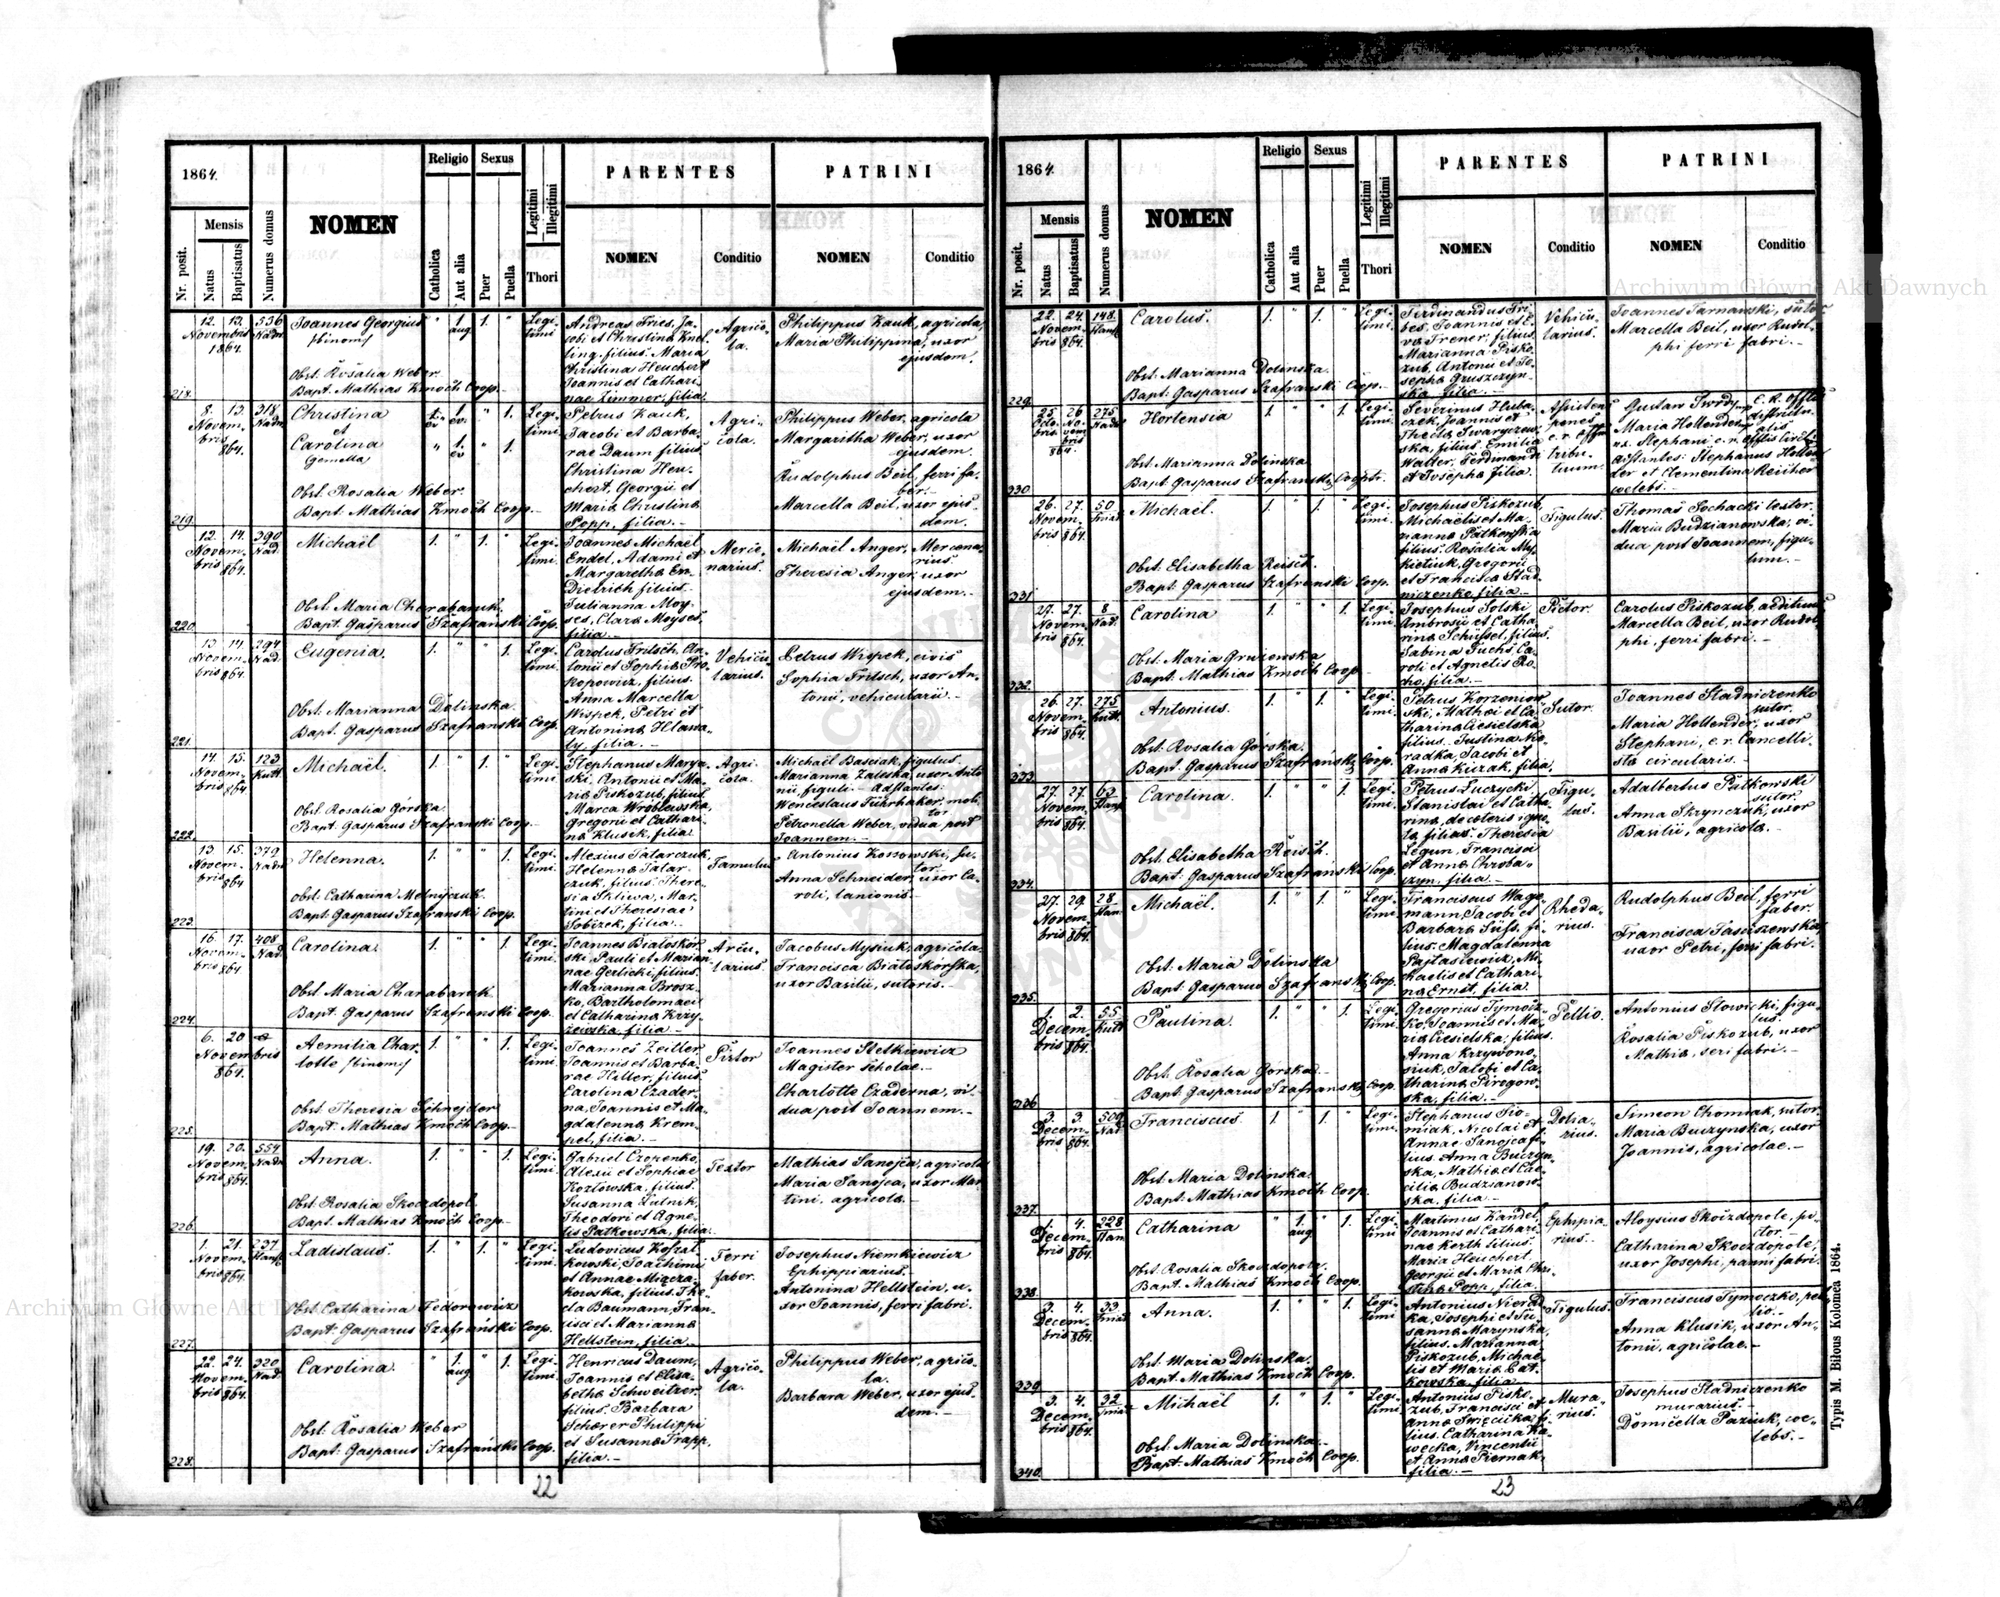 1864.
Nr. posit.
Mensis
Natus
Baptisatus
Numerus domus
NOMEN
Religio
Catholica
Aut alia
Sexus
Puer
Puella
Legitimi
Illegitimi
Thori
PARENTES
NOMEN
Conditio
PATRINI
NOMEN
Conditio
218.
12. 13. 536
Novembris
1864.
Joannes Georgius
(binom)
Obst. Rosalia Weber
Bapt. Mathias Kmoch Coop.
" 1. aug 1. "
Legitimi
Andreas Fries, Ja-
cobi et Christina Knel-
ling, filius. Maria
Christina Heuchert
Joannis et Cathari-
nae Zimmer, filia
Agrico-
la.
Philippus Kauk, agricola
Maria Philippina, uxor
ejusdem.
219.
8. 13. 318
Novem-
bris 864.
Christina
et
Carolina
(Gemella)
Obst. Rosalia Weber.
Bapt. Mathias Kmoch Coop.
Legi-
timi.
Petrus Kauk,
Jacobi et Barba-
rae Daum filius
Christina Heu-
chert, Georgii et
Maria Christina
Popp, filia.
Agri-
cola.
Philippus Weber, agricola
Margaritha Weber, uxor
ejusdem.
Rudolphus Beil, ferri fa-
ber.
Marcella Beil, uxor ejus-
dem.
220.
12. 14. 390
Novem-
bris 864.
Michaël
Obst. Maria Charabaruk.
Bapt. Gasparus Szafranski Coop.
1. " 1. "
Legi-
timi.
Joannes Michael
Endel, Adami et
Margaretha Em
Dietrich filius.
Julianna Moy-
ses, Clara Moyses,
filia.
Merce-
narius.
Michaël Anger, Mercena-
rius.
Theresia Anger, uxor
ejusdem.
221.
13. 14. 294
Novem-
bris 864.
Eugenia.
Obst. Marianna Dolinska.
Bapt. Gasparus Szafranski Coop.
1. " " 1.
Legi-
timi.
Carolus Fritsch, An-
tonii et Sophia Pro-
kopowicz, filius.
Anna Marcella
Wispek, Petri et
Antonina Hlawa-
ty, filia.
Vehicu-
larius.
Petrus Wispek, civis
Sophia Fritsch, uxor An-
tonii, vehicularii.
222.
14. 15. 123
Novem-
bris 864
Michaël.
Obst. Rosalia Górska
Bapt. Gasparus Szafranski Coop.
1. " 1. "
Legi-
timi.
Stephanus Marya-
ski, Antonii et Ma-
ria Piskozub, filius.
Marca Wroblewska,
Gregorii et Cathari-
na Klusik, filia
Agri-
cola.
Michaël Basciak, figulus.
Marianna Zaleska, uxor Anto-
nii, figuli. Adstantes:
Wenceslaus Führbaker, moli-
tor
Petronella Weber, vidua post
Joannem.
223.
13. 15. 379
Novem-
bris 864
Helenna.
Obst. Catharina Melnyczuk.
Bapt. Gasparus Szafranski Coop.
1. " " 1.
Legi-
timi.
Alexius Tatarczuk,
Helenna Tatar-
czuk, filius. There-
sia Skliwa, Mar-
tini et Theresiae
Sobizek, filia.
Famulus
Antonius Kossowski, su-
tor.
Anna Schneider, uxor Ca-
roli, lanionis.
224.
16. 17. 408
Novem-
bris 864
Carolina.
Obst. Maria Charabaruk
Bapt. Gasparus Szafranski Coop.
1. " " 1.
Legi-
timi.
Joannes Bialoskór-
ski, Pauli et Marian-
nae Gerlicki, filius.
Marianna Brosz-
ko, Bartholomaei
et Catharina Krzy-
zewska, filia
Arcu-
larius
Jacobus Mysiuk, agricola
Francisca Bialoskórska,
uxor Basilii, sutoris.
225.
6. 20
Novembris
864.
Aemilia Char-
lotte (binom)
Obst. Theresia Schnejder
Bapt. Mathias Kmoch Coop.
1. " " 1.
Legi-
timi.
Joannes Zeitler,
Joannis et Barba-
rae Hiller, filius
Carolina Czader-
na, Joannis et Ma-
gdalenna Krem-
pel, filia.
Pistor
Joannes Stetkiewicz
Magister scholae.
Charlotte Czaderna, vi-
dua post Joannem.
226.
19. 20. 554
Novem-
bris 864.
Anna.
Obst. Rosalia Skoczdopol
Bapt. Mathias Kmoch Coop.
1. " " 1.
Legi-
timi.
Gabriel Czopenko,
Alexii et Sophiae
Kozlowska, filius.
Susanna Lutnik,
Theodori et Agne-
tis Patkowska, filia.
Textor
Mathias Sanojca, agricola
Maria Sanojca, uxor Mar-
tini, agricola.
227.
1. 21. 237
Novem-
bris 864.
Ladislaus.
Obst. Catharina Fedorowicz
Bapt. Gasparus Szafranski Coop.
1. " 1. "
Legi-
timi.
Ludovicus Kossa-
kowski, Joachimi
et Annae Mizera-
kowska, filius. The-
cla Baumann, Fran-
cisci et Marianna
Hellstein, filia.
Ferri
faber.
Josephus Niemkiewicz
Ephippiarius.
Antonina Hellstein, u-
xor Joannis, ferri fabri.
228.
22. 24. 320
Novem-
bris 864.
Carolina.
Obst. Rosalia Weber
Bapt. Gasparus Szafranski Coop.
" 1. aug " 1.
Legi-
timi.
Henricus Daum,
Joannis et Elisa-
betha Schweitzer
filius. Barbara
Scherer Philippi
et Susanna Trapp,
filia.
Agrico-
la.
Philippus Weber, agrico-
la.
Barbara Weber, uxor ejus-
dem.
22
1864.
Nr. posit.
Mensis
Natus
Baptisatus
Numerus domus
NOMEN
Religio
Catholica
Aut alia
Sexus
Puer
Puella
Legitimi
Illegitimi
Thori
PARENTES
NOMEN
Conditio
PATRINI
NOMEN
Conditio
229.
22. 24. 148.
Novem-
bris 864.
Carolus.
Obst. Marianna Dolinska.
Bapt. Gasparus Szafranski Coop.
1. " 1. "
Legi-
timi.
Ferdinandus Tri-
bes, Joannis et E-
va Trener, filius.
Marianna Pisko-
zub, Antonii et Jo-
sepha Gruszczyn-
ska filia.
Vehicu-
larius.
Joannes Tarnawski, sutor
Marcella Beil, uxor Rudol-
phi ferri fabri.
330.
25. 26 275
Octo-
bris No-
vem-
bris
864.
Hortensia
Obst. Marianna Dolinska
Bapt. Gasparus Szafranski, Cooptr.
1. " " 1.
Legi-
timi.
Severinus Huba-
czek, Joannis et
Thecla Swaryczew-
ska, filius. Emilia
Walter, Ferdinandi
et Josepha filia.
Assistens
penes
c. r. offm
tribu-
tuum.
Gustaw Twrdy, c. k. offlis
districtu-
alis
Maria Hollender,
ux. Stephani c. r. offlis circl.
Astantes: Stephanus Hollen-
der et Clementina Reicher
coelebs.
331.
26. 27. 50
Novem-
bris 864.
Michaël.
Obst. Elisabetha Reisch.
Bapt. Gasparus Szafranski Coop.
1. " 1. "
Legi-
timi.
Josephus Piskozub,
Michaëlis et Ma-
rianna Patkowska
filius. Rosalia My-
kietiuk, Gregorii
et Francisca Stad-
niczenko filia.
Figulus.
Thomas Sochacki textor.
Maria Budzianowska, vi-
dua post Joannem, figu-
lum.
332.
27. 27. 8
Novem-
bris 864.
Carolina
Obst. Maria Gruszewska
Bapt. Mathias Kmoch Coop.
1. " " 1.
Legi-
timi.
Josephus Solski
Ambrosii et Catha-
rina Schüssel, filius.
Sabina Fuchs, Ca-
roli et Agnetis Ro-
cho, filia.
Pictor.
Carolus Piskozub, aedituus
Marcella Beil, uxor Rudol-
phi, ferri fabri.
333.
26. 27. 275
Novem-
bris 864.
Antonius.
Obst. Rosalia Górska.
Bapt. Gasparus Szafranski Coop.
1. " 1. "
Legi-
timi.
Petrus Korzeniow-
ski, Mathei et Ca-
tharina Ciesielska
filius. Justina Nie-
radka, Jacobi et
Anna Kuzak, filia.
Sutor.
Joannes Stadniczenko
sutor.
Maria Hollender, uxor
Stephani, c. r. Cancelli-
sta circularis.
334.
27. 27. 63
Novem-
bris 864.
Carolina.
Obst. Elisabetha Reisch.
Bapt. Gasparus Szafranski Coop.
1. " " 1.
Legi-
timi.
Petrus Luczycki
Stanislai et Catha-
rina, de caeteris igno-
ta, filius. Theresia
Legun, Francisci
et Anna Chroba-
czyn, filia.
Figu-
lus.
Adalbertus Putkowski
sutor.
Anna Skrynczuk, uxor
Basilii, agricola.
335.
27. 29. 28
Novem-
bris 864.
Michaël.
Obst. Maria Dolinska
Bapt. Gasparus Szafranski, Coop.
1. " 1. "
Legi-
timi.
Franciscus Wage-
mann, Jacobi et
Barbara Süss, fi-
lius. Magdalenna
Pajtasiewicz, Mi-
chaelis et Cathari-
na Ernst, filia.
Rheda-
rius.
Rudolphus Beil, ferri
faber.
Francisca Jasciszewska,
uxor Petri, ferri fabri.
336
1. 2. 55
Decem-
bris 864.
Paulina.
Obst. Rosalia Górska
Bapt. Gasparus Szafranski, Coop.
1. " " 1.
Legi-
timi.
Gregorius Tymocz-
ko, Joannis et Ma-
ria Ciesielska, filius.
Anna Krzywons-
siuk, Jacobi et Ca-
tharina Pirogow-
ska, filia.
Pellio.
Antonius Slowicki, figu-
lus.
Rosalia Piskozub, uxor
Mathia, seri fabri.
337.
3. 3. 509
Decem-
bris 864.
Franciscus.
Obst. Maria Dolinska
Bapt. Mathias Kmoch Coop.
1. " 1. "
Legi-
timi.
Stephanus Sio-
miak, Nicolai et
Annae Sanojca fi-
lius. Anna Buczyn-
ska, Mathia et Cae-
cilia Budzianow-
ska, filia.
Dolia-
rius.
Simeon Chomiak, sutor.
Maria Buczynska, uxor
Joannis, agricolae.
338.
1. 4. 228
Decem-
bris 864.
Catharina
Obst. Rosalia Skoczdopole.
Bapt. Mathias Kmoch Coop.
" 1. aug " 1.
Legi-
timi.
Martinus Kandel,
Joannis et Cathari-
nae Kerth filius.
Maria Heuchert
Georgii et Maria Chri-
stina Popp, filia.
Ephipia-
rius.
Aloysius Skoczdopole, su-
tor.
Catharina Skoczdopole,
uxor Josephi, panni fabri.
339.
3. 4. 33
Decem-
bris 864.
Anna.
Obst. Maria Dolinska.
Bapt. Mathias Kmoch Coop.
1. " " 1.
Legi-
timi
Antonius Nierad-
ka, Josephi et Su-
sanna Marynska,
filius. Marianna
Piskozub, Michae-
lis et Maria Cat-
kowska, filia
Figulus.
Franciscus Tymoczko, pel-
lio.
Anna Klusik, uxor An-
tonii, agricolae.
340.
3. 4. 32
Decem-
bris 864.
Michaël
Obst. Maria Dolinska.
Bapt. Mathias Kmoch Coop.
1. " 1. "
Legi-
timi
Antonius Pisko-
zub, Francisci et
Anna Swięcicka, fi-
lius. Catharina Ka-
wecka, Vincentii
et Anna Piernak,
filia.
Mura-
rius.
Josephus Stadniczenko
murarius.
Domicella Paziuk, coe-
lebs.
Typis M. Biłous Kolomea 1864.
23
Archiwum Główne Akt Dawnych
Archiwum Główne Akt Dawnych